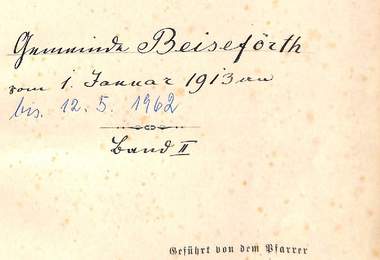 Gemeinde Beiseförth
vom 1. Januar 1913 an
bis. 12. 5. 1962
Band II
Geführt von dem Pfarrer